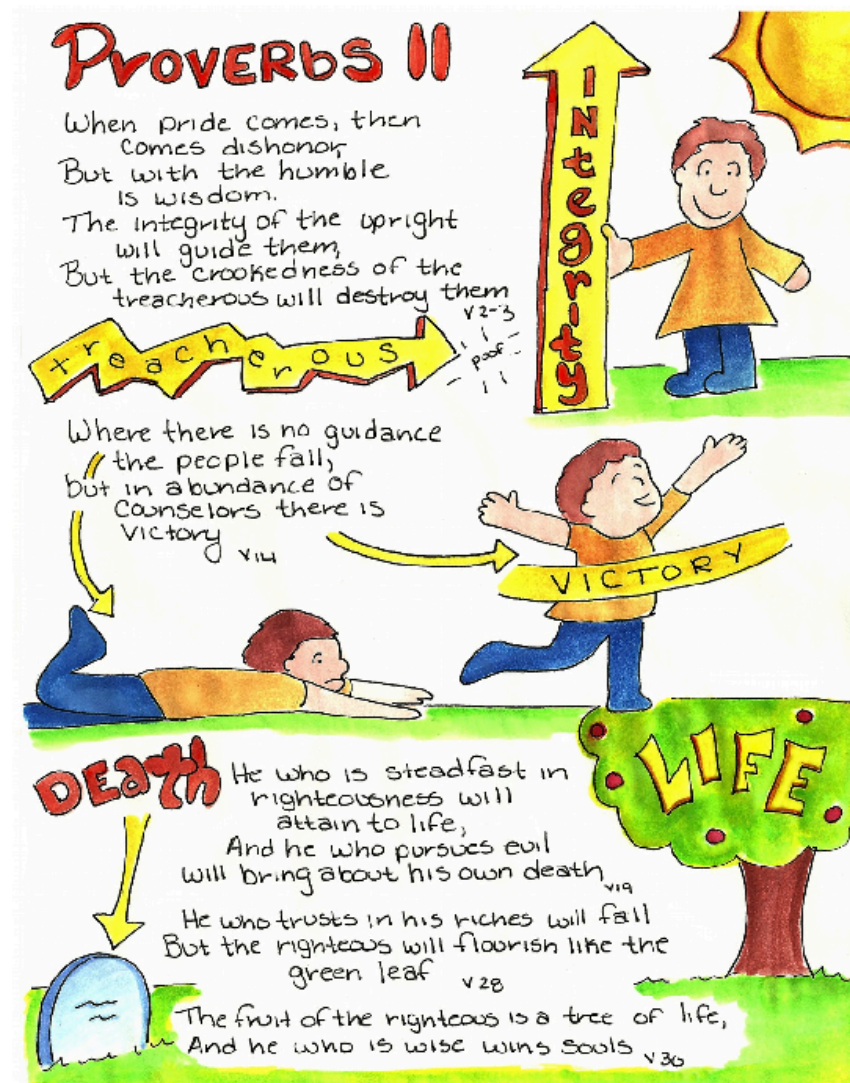 Proverbs 11
When pride comes, then
comes dishonor,
But with the humble
is wisdom.
The integrity of the upright
will guide them,
But the crookedness of the
treacherous will destroy them
v2-3
treacherous
poof
Integrity
Where there is no guidance
the people fall,
but in abundance of
counselors there is
victory
v14
VICTORY
Death
LIFE
He who is steadfast in
righteousness will
attain to life,
And he who pursues evil
will bring about his own death
v19
He who trusts in his riches will fall
But the righteous will flourish like the
green leaf
v28
The fruit of the righteous is a tree of life,
And he who is wise wins souls
v30